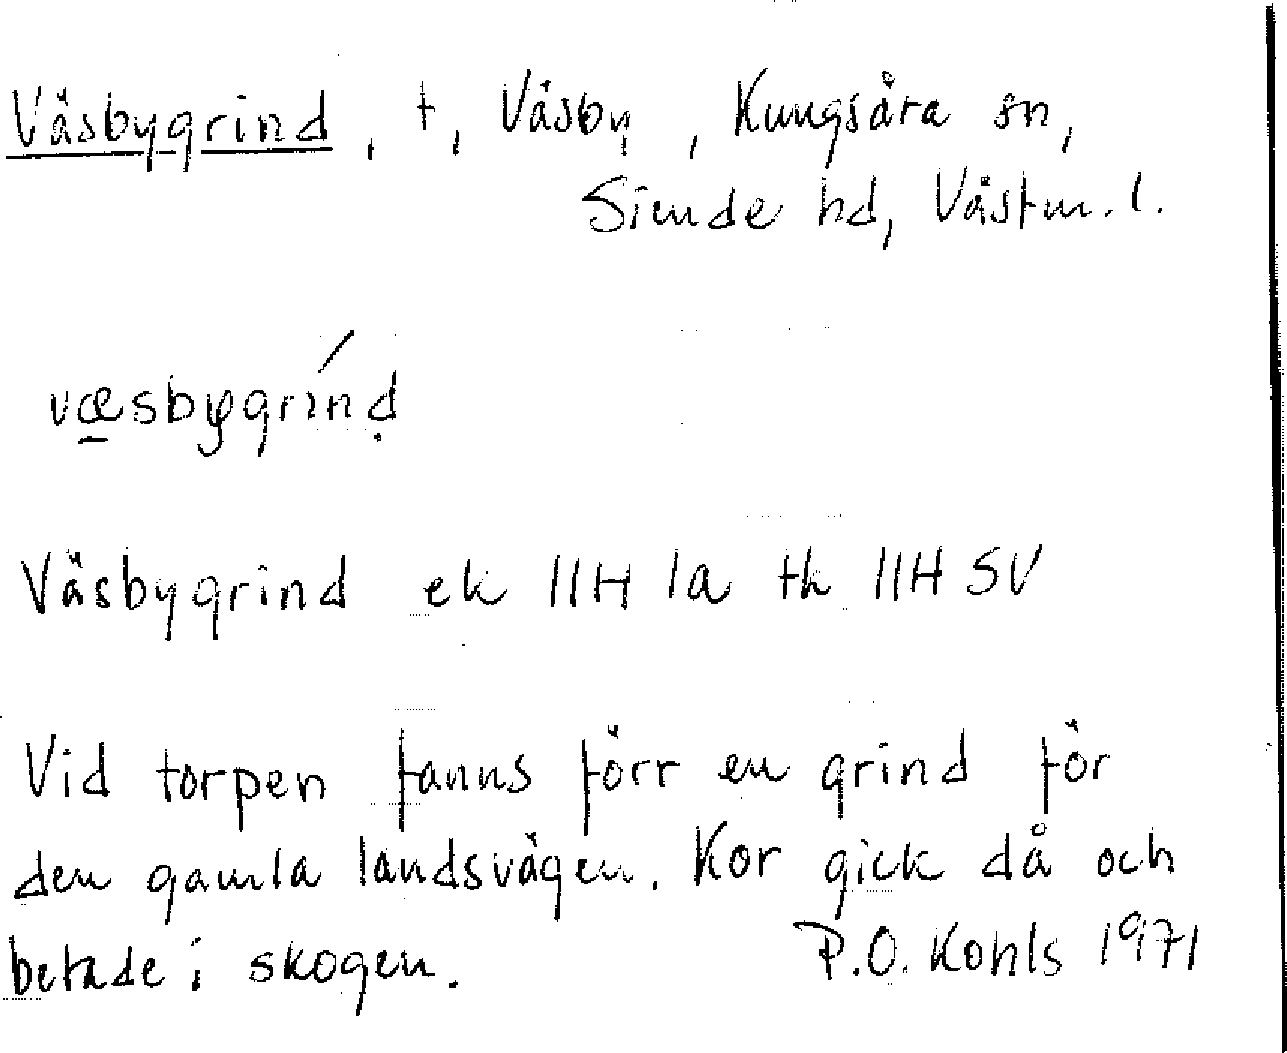 Väsbygrind, t, Väsby, Kungsåra sn,
Siende hd, Västm. l.
væsbygrínḍ
Väsbygrind ek 11H 1a tk 11H SV
Vid torpen fanns förr en grind för
den gamla landsvägen. Kor gick då och
betade i skogen. P.O. Kohls 1971